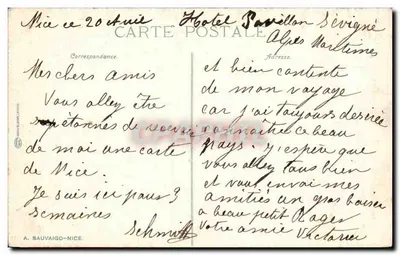 Nice ce 20 Avril Hotel Pavillon Sévigné
Alpes Maritimes
CARTE POSTALE
Correspondance.
Adresse.
Mes chers amis
Vous allez être
étonnés de recevoir
de moi une carte
de Nice.
Je suis ici pour 3
semaines
Schmitt
et bien contente
de mon voyage
car j'ai toujours desirée
connaître ce beau
pays. J'espère que
vous allez tous bien
et vous envoi mes
amitiés un gros baiser
a beau petit Roger
Votre amie Victorine
A. BAUVAIGO-NICE.